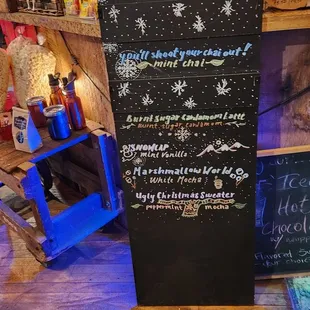 You'll shoot your chai out!
mint chai
Burnt Sugar Cardamom Latte
Burnt sugar, cardamom
mint Vanilla
Marshmallow World
White Mocha
Ugly Christmas Sweater
peppermint mocha
Iced
Hot
Chocola
Flavored S